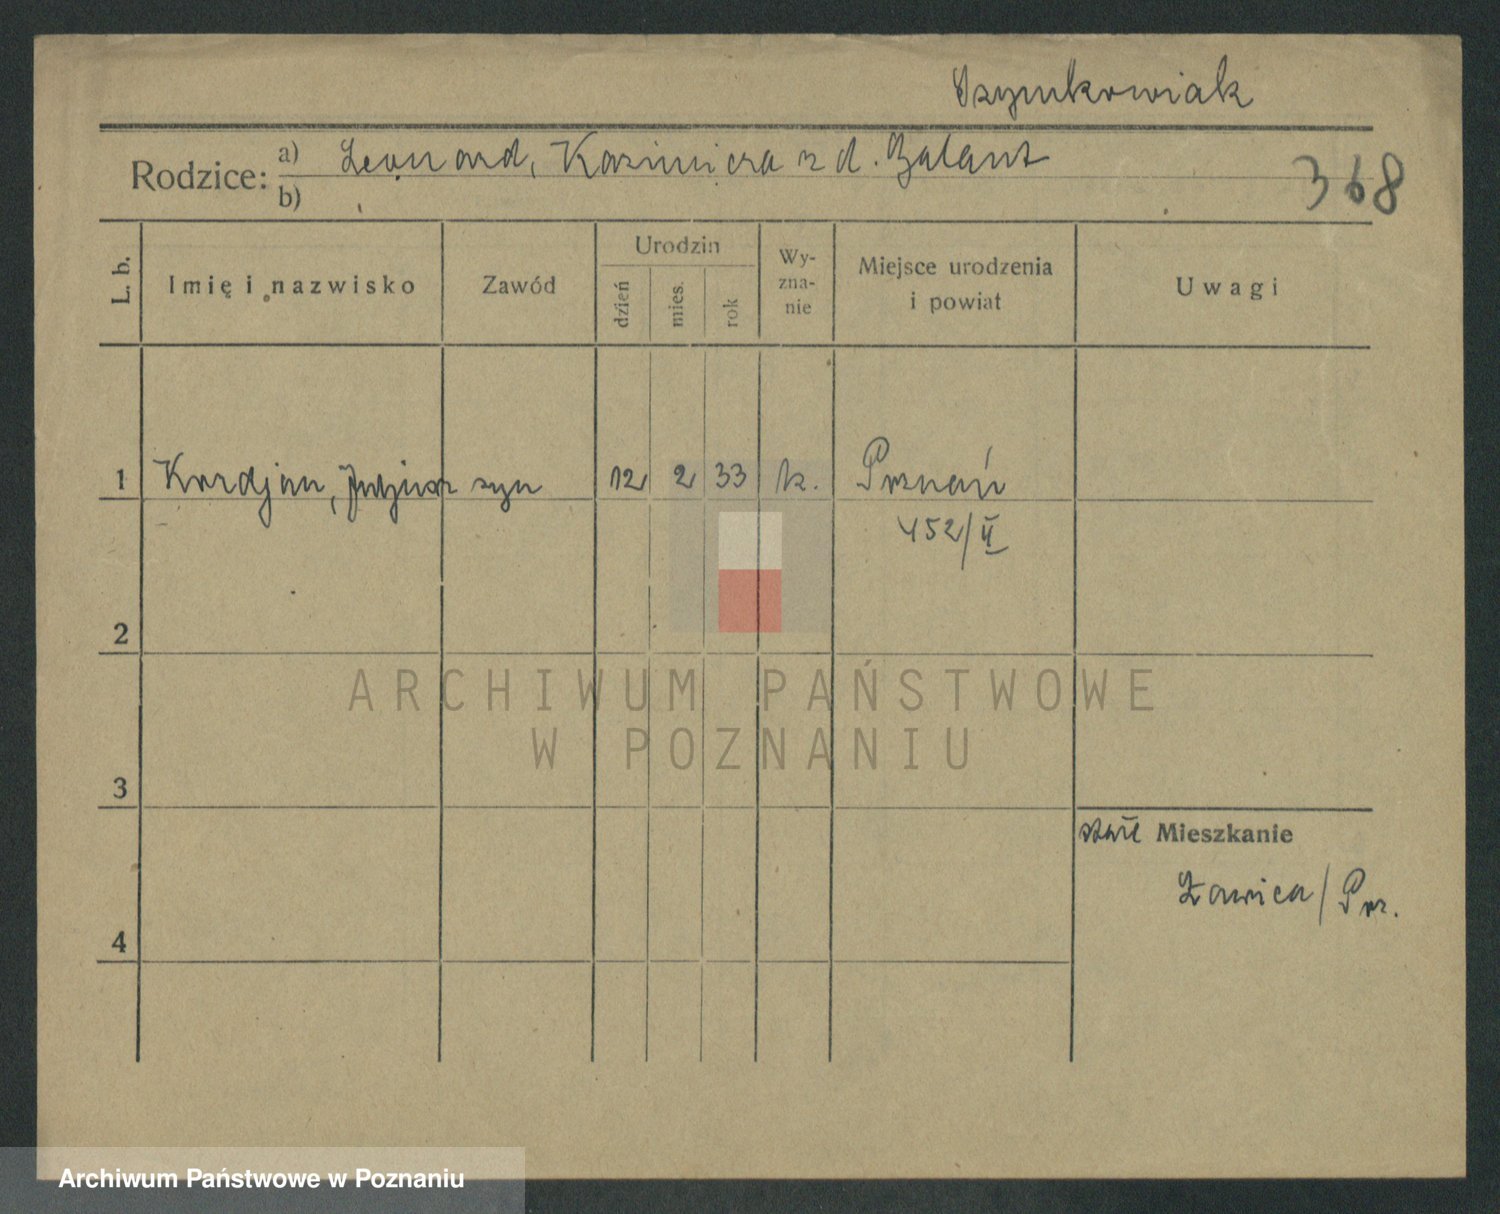 Szymkowiak
Rodzice: a) Leonard, Kazimiera z d. Galant
b)
368
L. b.
Imię i nazwisko
Zawód
Urodzin
dzień
mies.
rok
Wy-
zna-
nie
Miejsce urodzenia
i powiat
Uwagi
1 Kordjan, syn 12 2 33 k. Poznań
452/II
2
3
4
stałe Mieszkanie
Ławica / Pozn.
ARCHIWUM PAŃSTWOWE
W POZNANIU
Archiwum Państwowe w Poznaniu